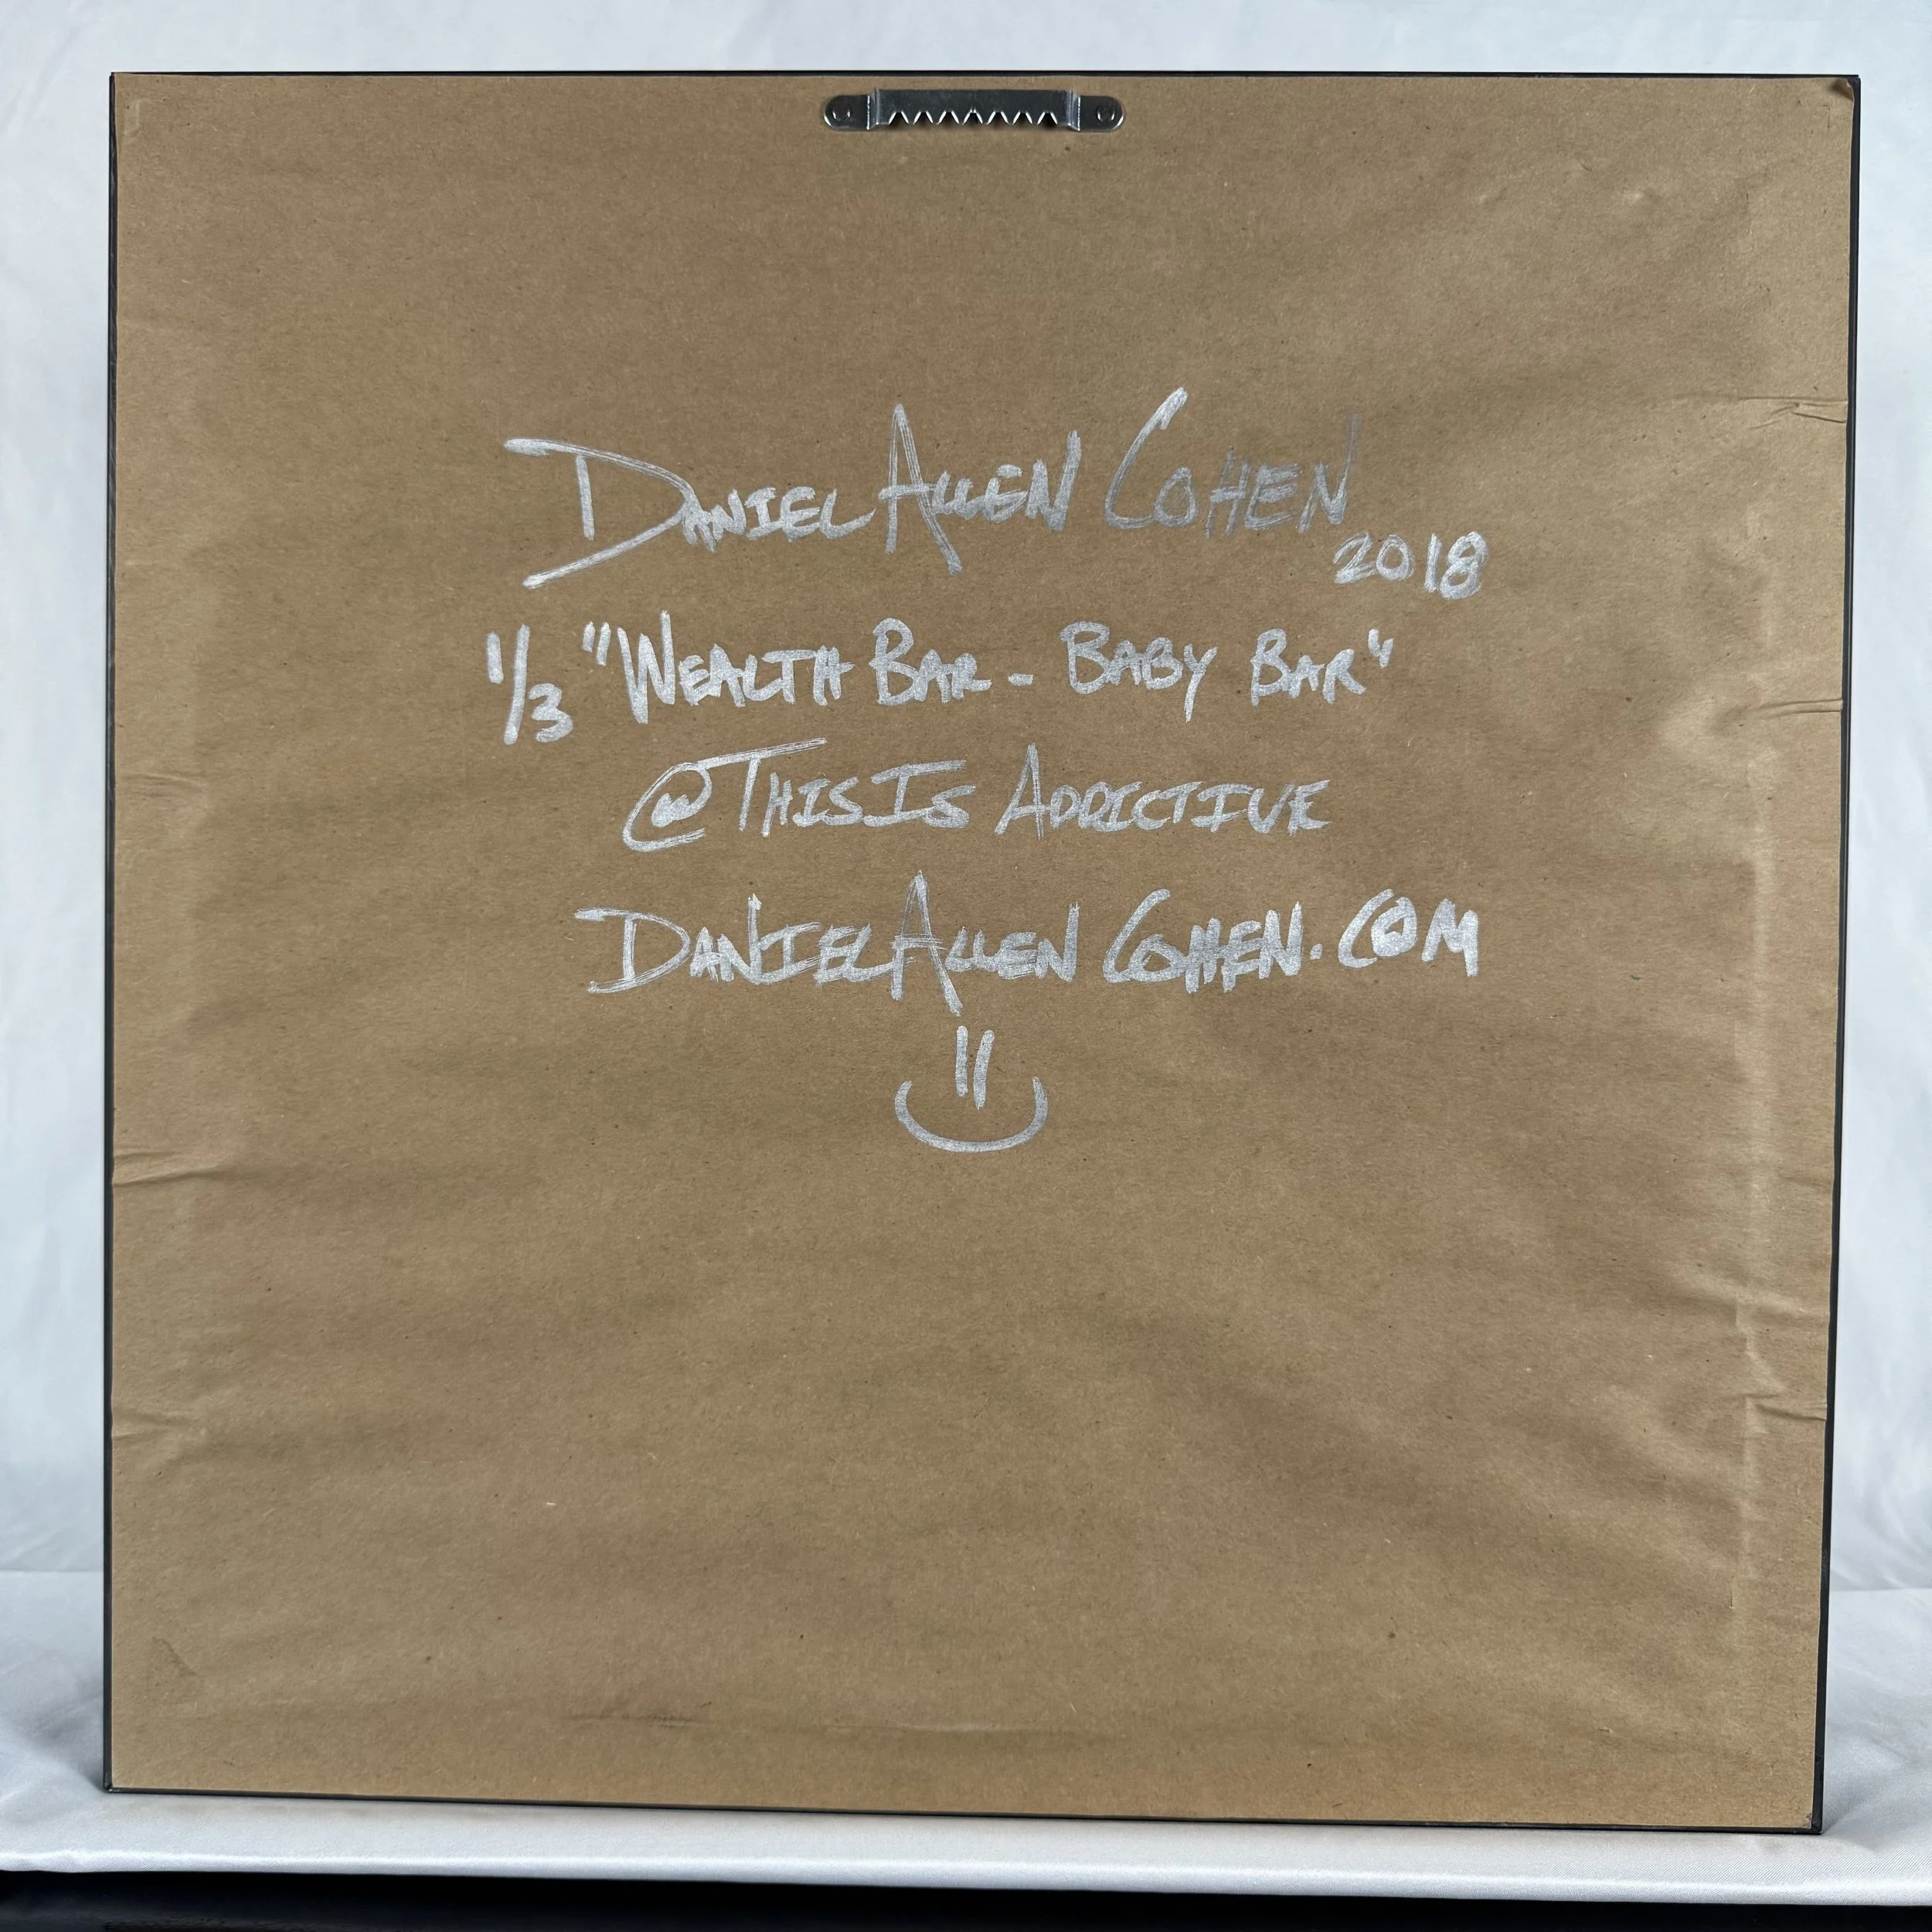 DANIEL ALLEN COHEN
2018
1/3 "WEALTH BAR - BABY BAR"
@THISIS ADDICTIVE
DANIELALLEN COHEN.COM